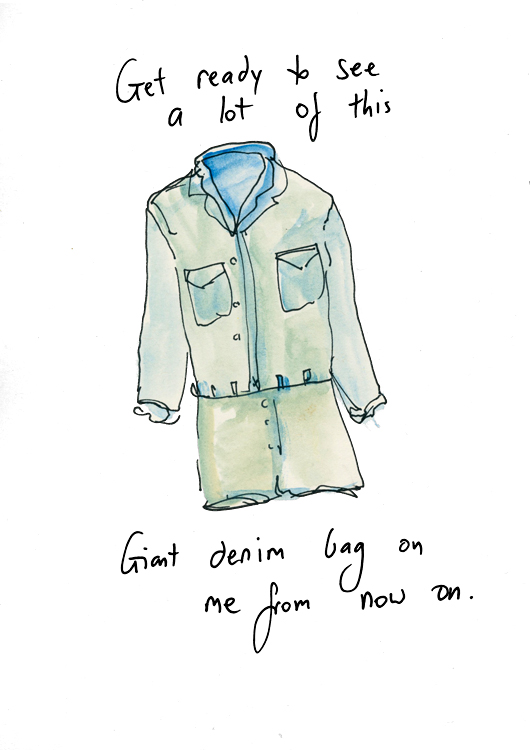 Get ready to see
a lot of this
Giant denim bag on
me from now on.